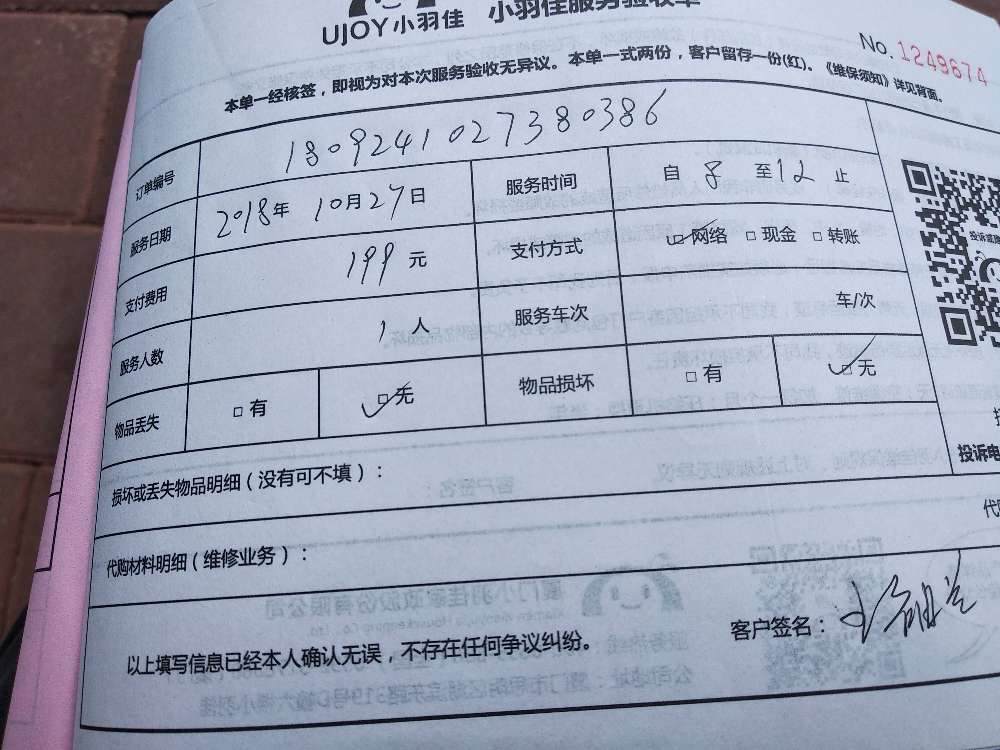 UJOY小羽佳 小羽佳服务验收单
No.1249674
本单一经核签，即视为对本次服务验收无异议。本单一式两份，客户留存一份(红)。《维保须知》详见背面。
订单编号 1809241027380386
服务日期 2018年 10月27日 服务时间 自 8 至12 止
支付费用 199 元 支付方式 ☑网络 □现金 □转账
服务人数 1 人 服务车次 车/次
物品丢失 □有 ☑无 物品损坏 □有 ☑无
损坏或丢失物品明细（没有可不填）：
投诉电
代购材料明细（维修业务）：
以上填写信息已经本人确认无误，不存在任何争议纠纷。
客户签名：